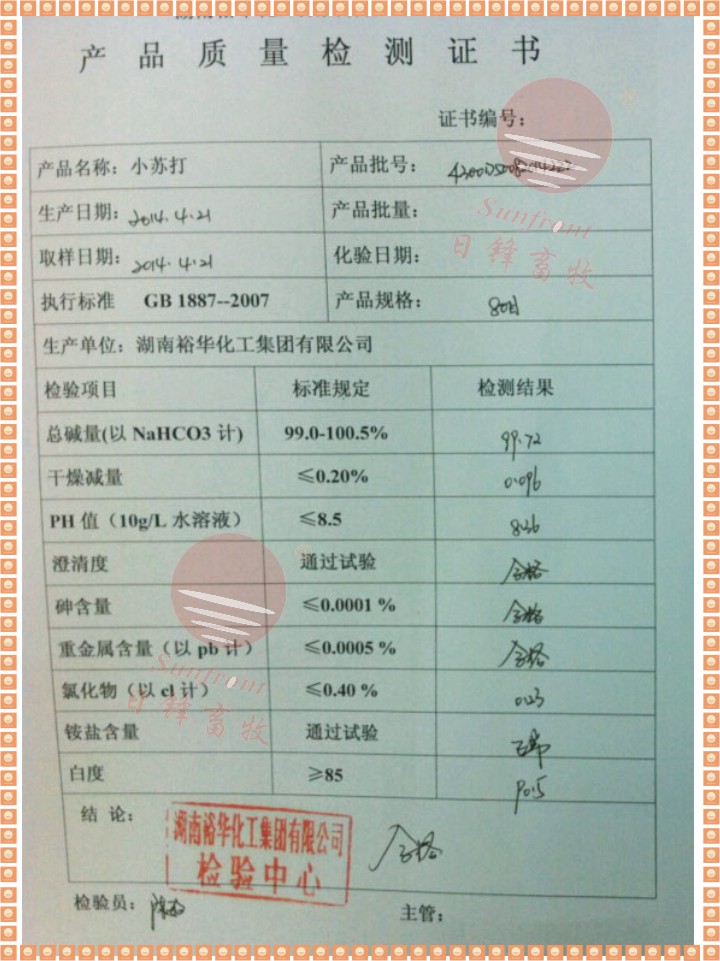 产品质量检测证书
证书编号：
产品名称：小苏打 产品批号：
生产日期：2014.4.21 产品批量：
取样日期：2014.4.21 化验日期：
执行标准 GB 1887--2007 产品规格：80目
生产单位：湖南裕华化工集团有限公司
检验项目 标准规定 检测结果
总碱量(以 NaHCO3 计) 99.0-100.5% 99.72
干燥减量 ≤0.20% 0.096
PH 值（10g/L 水溶液） ≤8.5 8.36
澄清度 通过试验 合格
砷含量 ≤0.0001 % 合格
重金属含量（以 pb 计） ≤0.0005 % 合格
氯化物（以 cl 计） ≤0.40 % 0.23
铵盐含量 通过试验
白度 ≥85 90.5
结 论： 合格
湖南裕华化工集团有限公司
检验中心
检验员： 主管：
Sunfront
日鋒畜牧
Sunfront
日鋒畜牧